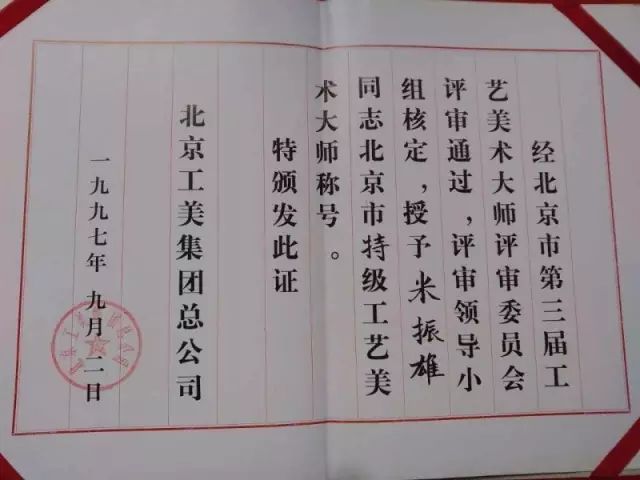 经北京市第三届工
艺美术大师评审委员会
评审通过，评审领导小
组核定，授予米振雄
同志北京市特级工艺美
术大师称号。
特颁发此证
北京工美集团总公司
一九九七年九月二日